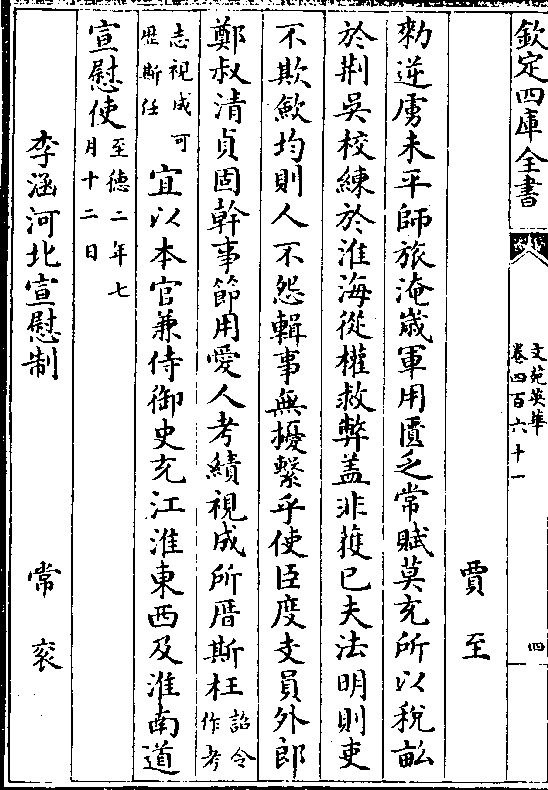 欽定四庫全書
文苑英華
卷四百六十一
四
賈至
勑逆虜未平師旅淹歲軍用匱乏常賦莫充所以稅畝
於荆吳校練於淮海從權救弊盖非獲已夫法明則吏
不欺斂均則人不怨輯事無擾繫乎使臣度支員外郎
鄭叔清貞固幹事節用愛人考績視成所厝斯枉詔令作考
志視成可歴斯任宜以本官兼侍御史充江淮東西及淮南道
宣慰使至德二年七月十二日
李涵河北宣慰制 常衮